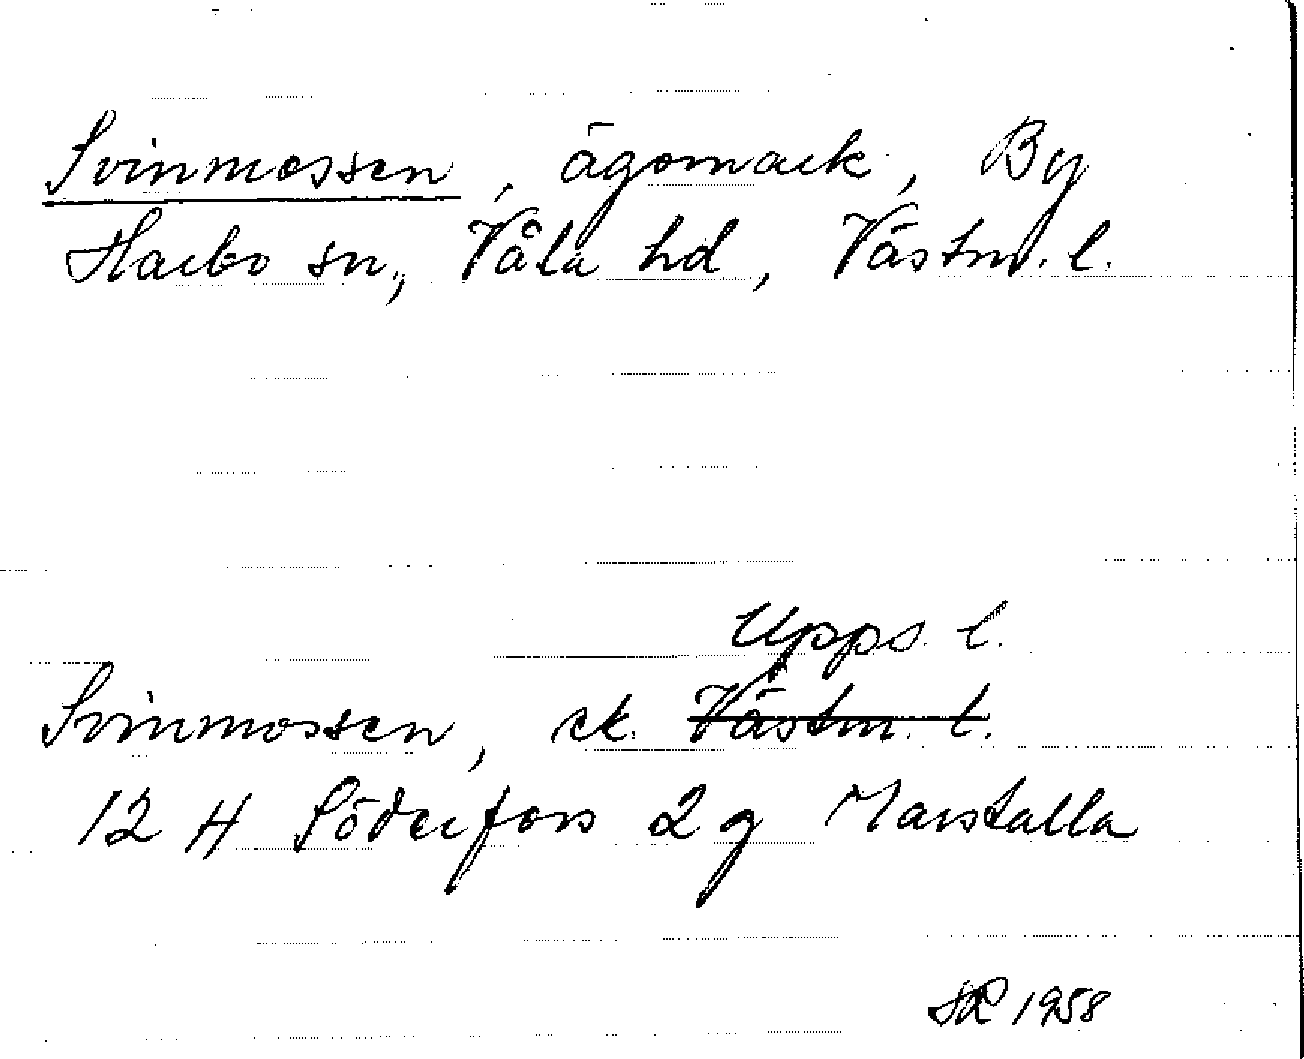 Svinmossen, ägomark, By
Harbo sn., Våla hd, Västm. l.
Upps. l.
Svinmossen, ek. Västm. l.
12 H Söderfors 2 g Marstalla
1958